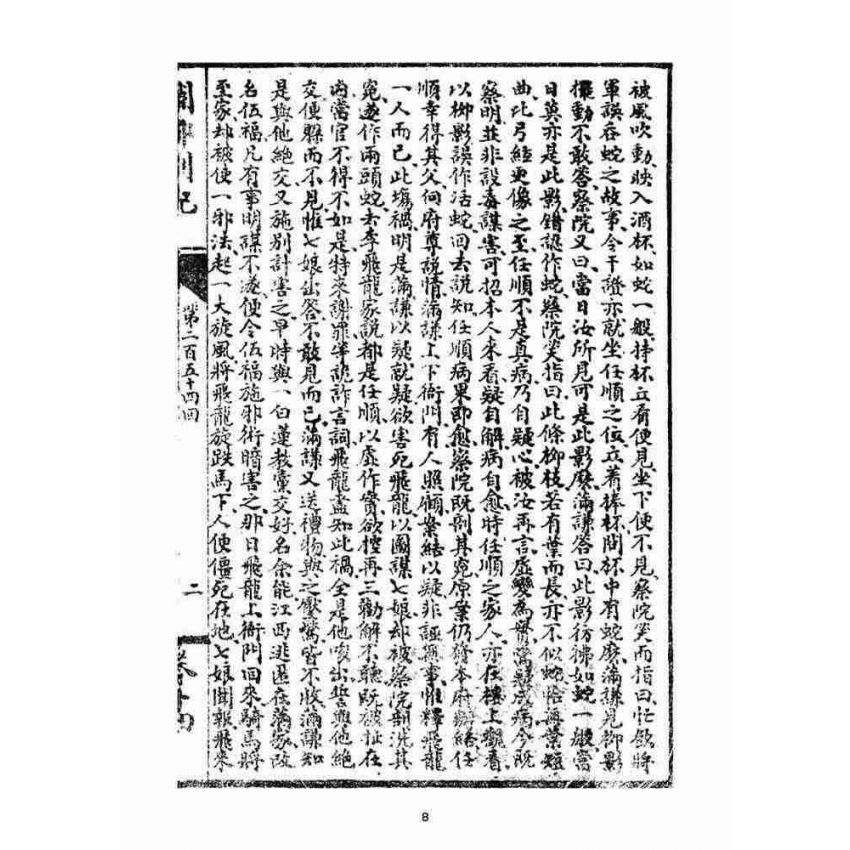 被風吹動映入酒杯如蛇一般持杯立看便見坐下便不見察院笑而指曰忙飲將
軍誤吞蛇之故事今干證亦就坐任順之位立着捧杯問杯中有蛇麽滿謙見柳影
擺動不敢答察院又曰當日汝所見可是此影麽滿謙答曰此影彷彿如蛇一般當
日莫亦是此影錯認作蛇察院笑指曰此條柳枝若有葉而長亦不似蛇恰無葉短
曲比弓經更像之至任順不是真病乃自疑心被汝再言虛變為實驚疑成病今既
察明並非設毒謀害可招本人來看疑自解病自愈時任順之家人亦在樓上觀看
以柳影誤作活蛇回去說知任順病果即愈察院既剖其冤原案仍發本府辦結任
順幸得其父向府尊說情滿謙上下衙門有人照顧案結以疑非誣無事惟釋飛龍
一人而已此塲禍明是滿謙以疑就疑欲害死飛龍以圖謀七娘却被察院剖洗其
冤遂作兩頭蛇去李飛龍家說都是任順以虛作實欲控再三勸解不聽既被扯在
內當官不得不如是特來謝罪等詭詐言詞飛龍盡知此禍全是他唆出誓與他絕
交便躲而不見惟七娘出答不敢見而已滿謙又送禮物與之壓驚皆不收滿謙知
是與他絕交又施別計害之早時與一白蓮教黨交好名余能江西逃匿在滿家改
名伍福凡有事明謀不遂便令伍福施邪術暗害之那日飛龍上衙門回來騎馬將
至家却被使一邪法起一大旋風將飛龍旋跌馬下人便僵死在地七娘聞報飛來
第二百五十四回
二
卷十四
8